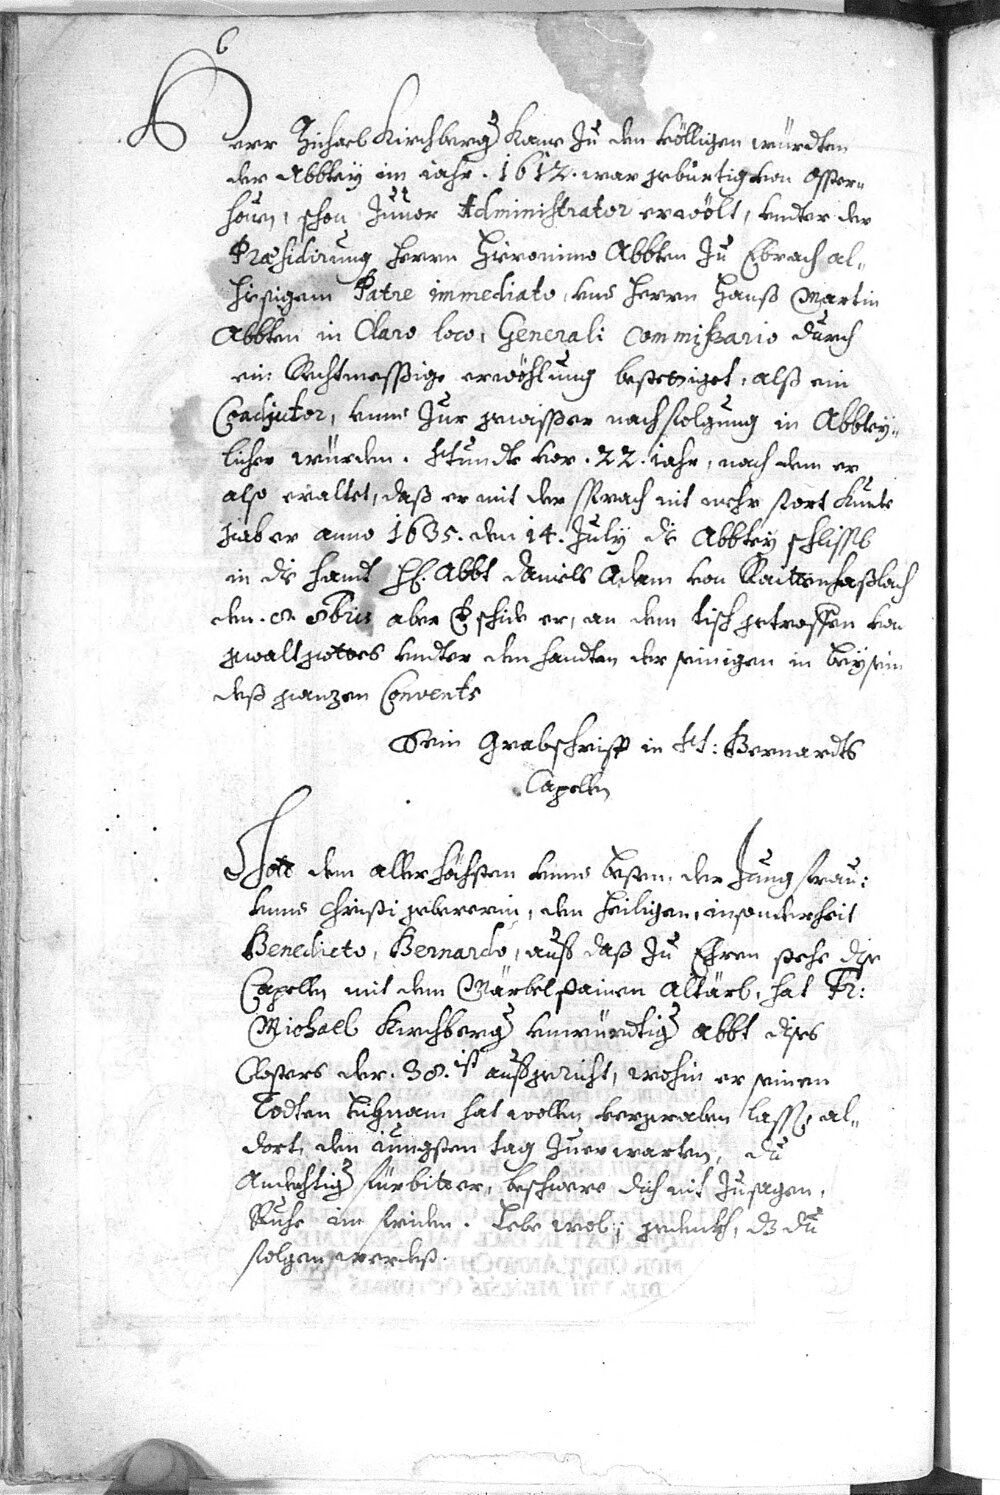 6
Herr Michael Kirchberg kame zu den völligen würdten
der Abbtey im iahr. 1612. war gebürtig von Osster-
houen, schon zuuor Administrator erwölt, vndter der
Præsidirung herrn Hieronimo Abbten zu Ebrach al-
hiesigem Patre immediato, vnd herrn Hanß Martin
Abbten in Claro loco, Generali Commissario durch
ein Rechtmessige erwöhlung bestettiget, alß ein
Coadjutor, vnnd zur gewisser nachfolgung in Abbtey-
licher würden. Stundte vor. 22. iahr, nach dem er
also eraltet, daß er mit der sprach nit mehr fort kunte
gab er anno 1635. den 14. July die Abbtey schlissl
in die handt H. Abbt Daniels Adam von Raittenhaßlach
den. 8. 8bris aber verschide er, an dem tisch getroffen von
gwalt gottes vndter den handten der seinigen in beysein
deß ganzen Convents
Sein Grabschrifft in St: Bernardts
Capelln
Gott dem allerhöchsten vnnd besten, der Jungfrau:
vnnd Christi gebererin, den heiligen, insonderheit
Benedicto, Bernardo, auf daß zu Ehren stehe dise
Capelln mit dem Märbelstainen Altärl, hat Fr:
Michael Kirchberg vnwürdtig Abbt dises
Closters der. 38.ist aufgericht, wohin er seinen
Todten Leichnam hat wollen vergraben lassen, al-
dort, den iungsten tag zuerwarten, du
Andechtig fürbitter, beschwere dich nit zusagen,
Ruhe im friden. Lebe wol, gedenckh, dz du
folgen werdest.